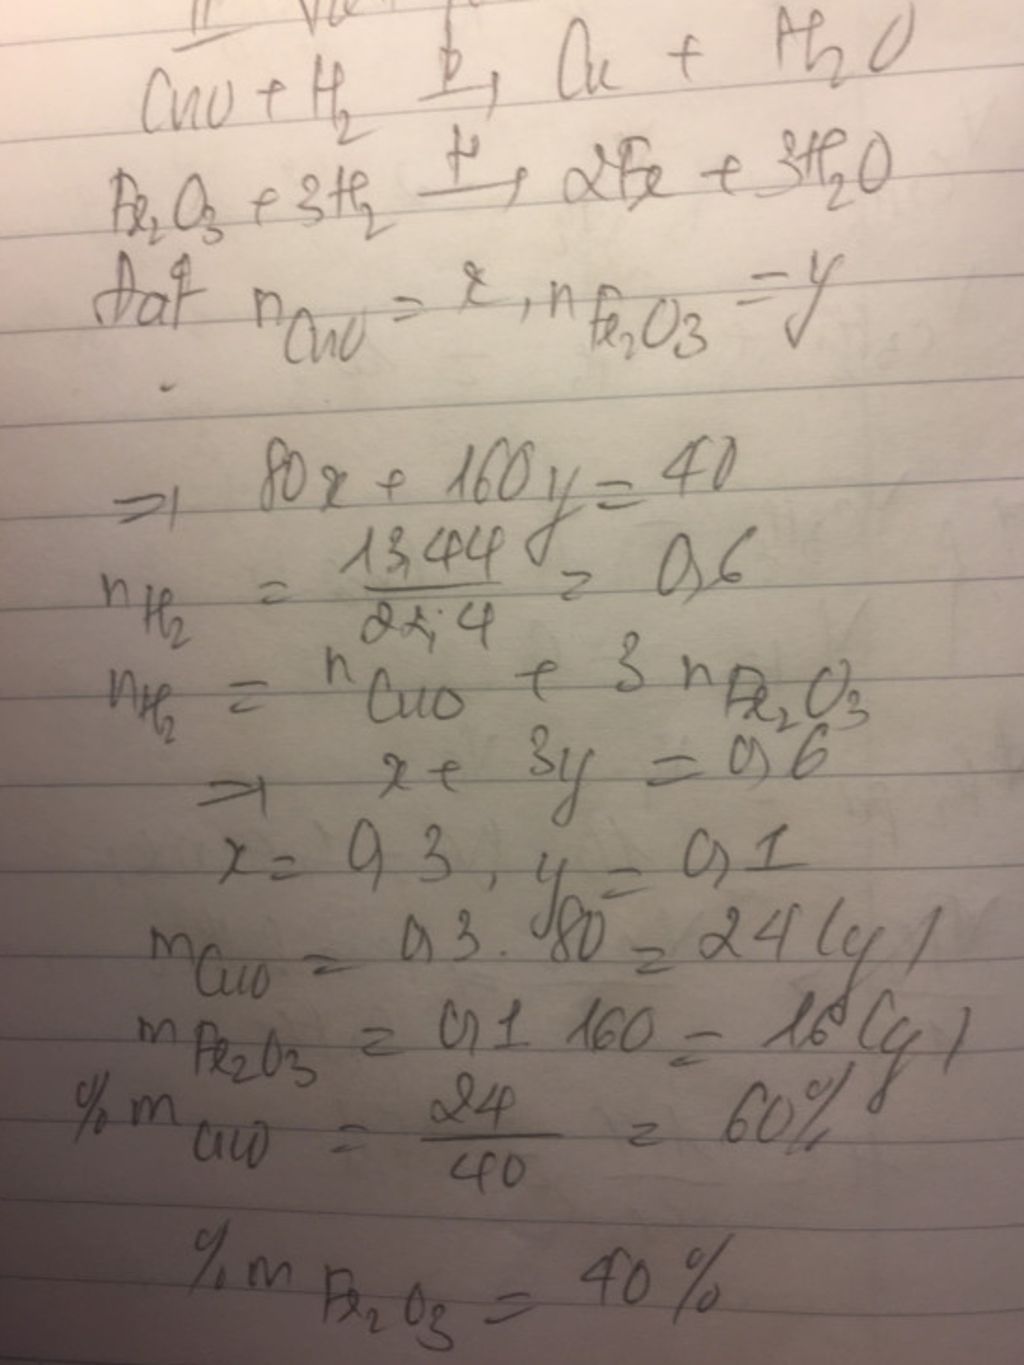 CuO + H₂ →(t°) Cu + H₂O
Fe₂O₃ + 3H₂ →(t°) 2Fe + 3H₂O
Đặt n CuO = x, n Fe₂O₃ = y
⇒ 80x + 160y = 40
n H₂ = 13,44 / 22,4 = 0,6
n H₂ = n CuO + 3 n Fe₂O₃
⇒ x + 3y = 0,6
x = 0,3, y = 0,1
m CuO = 0,3 . 80 = 24 (g)
m Fe₂O₃ = 0,1 160 = 16 (g)
% m CuO = 24 / 40 = 60%
% m Fe₂O₃ = 40 %